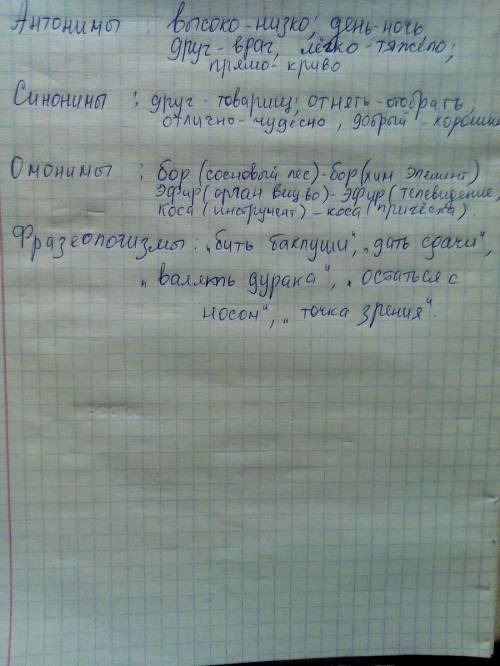 Антонимы : высоко-низко; день-ночь,
друг-враг, лёгко-тяжело;
прямо-криво
Синонины : друг-товарищ; отнять-отобрать,
отлично-чудесно, добрый-хороший
Омонимы : бор (сосновый лес)-бор (хим элемент)
эфир (орган вещ-во)- эфир (телевидение)
коса (инструмент) - коса (прическа).
Фразеологизмы: „бить баклуши", „дать сдачи",
„валять дурака", „остаться с
носом", „точка зрения".